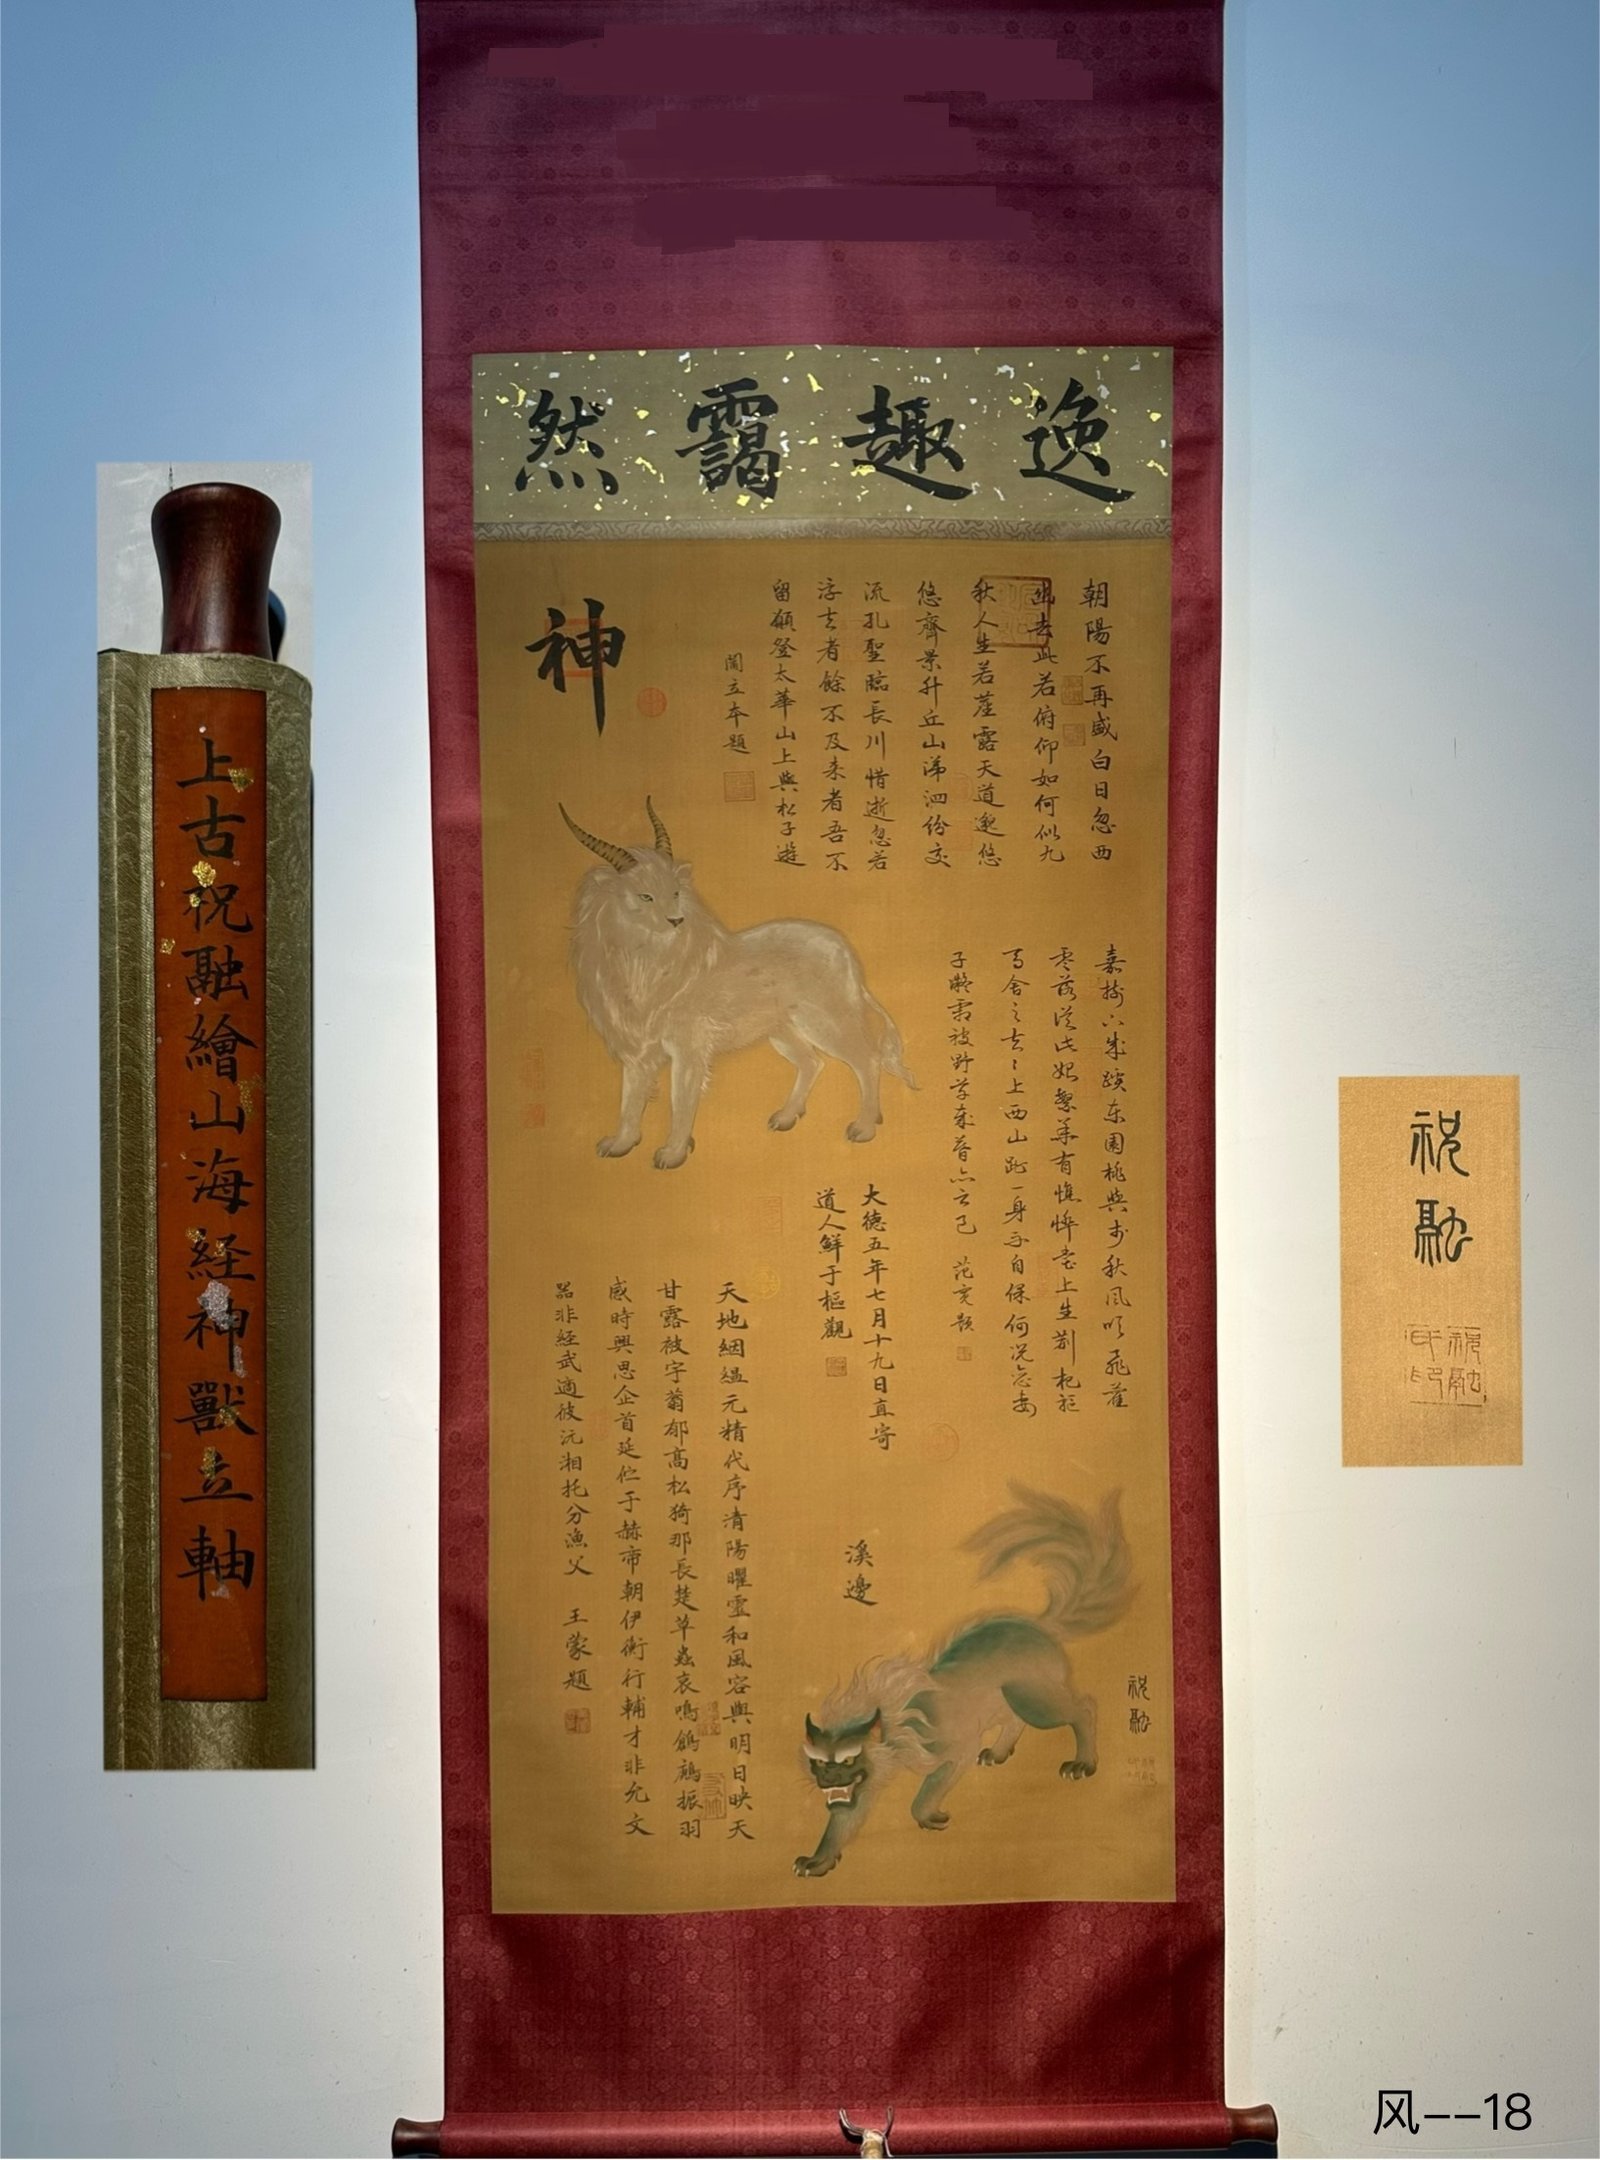 逸趣靄然
朝陽不再盛白日忽西
幽去此若俯仰如何似九
秋人生若塵露天道邈悠
悠齊景升丘山涕泗紛交
流孔聖臨長川惜逝忽若
浮去者餘不及来者吾不
留願登太華山上與松子遊
閻立本題
神
嘉樹下成蹊东園桃與李秋風吹飛藿
零落從此始繁華有憔悴堂上生荆杞驅
馬舍之去々上西山趾一身不自保何况恋妻
子凝霜被野草歲暮亦云已 范寛题
大德五年七月十九日直寄
道人鮮于樞觀
天地絪縕元精代序清陽曜靈和風容與明日映天
甘露被宇蓊郁高松猗那長楚草蟲哀鳴鶬鶊振羽
感時興思企首延伫于赫帝朝伊衡行輔才非允文
器非経武適彼沅湘托分漁父 王蒙題
溪邊
祝融
上古祝融繪山海経神獸立軸
祝融
祝融
氏印
风--18